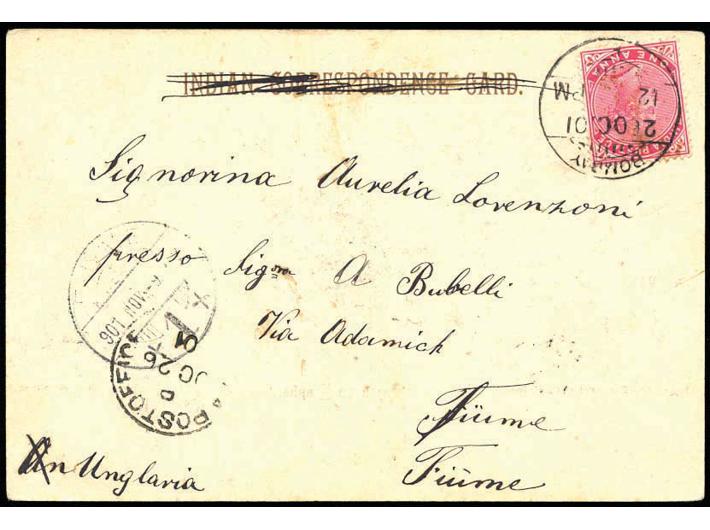 INDIAN CORRESPONDENCE CARD.
ONE ANNA
BOMBAY
12 PM
2 OC 01
Signorina Aurelia Lorenzoni
presso Sigra A Bubelli
Via Adamich
Fiume
Fiume
An Unglaria
901 NOV
POSTOFFICE
D
OC 26
01